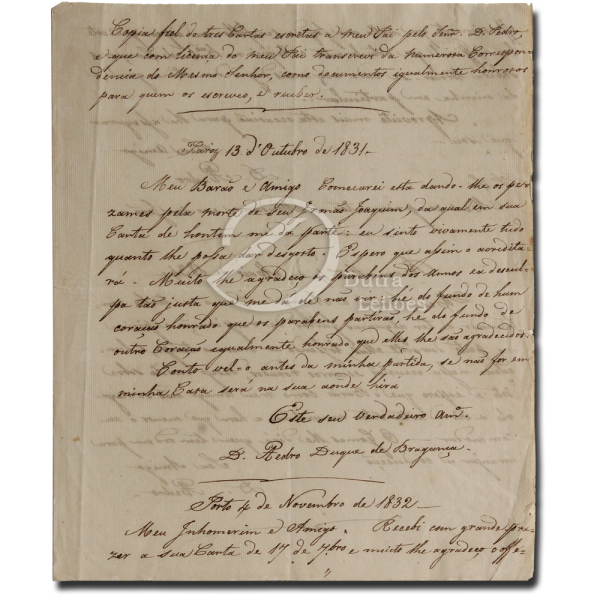 Copia fiel de tres Cartas escritas a meu Pai pelo Senr. D. Pedro,
e que com licença do meu Pai transcrevi da numerosa Correspon-
dencia do Mesmo Senhor, como documentos igualmente honrosos
para quem os escreveo, e recebeo.
Pariz 13 d'Outubro de 1831-
Meu Barão e Amigo Começarei esta dando-lhe os pe-
zames pela morte de Seu Irmão Joaquim, da qual em sua
Carta de hontem me da parte: eu sinto vivamente tudo
quanto lhe possa dar desgosto. Espero que assim o acredita-
rá. Muito lhe agradeço os parabens dos annos e a descul-
pa tão justa que me dá de não vir: hé do fundo de hum
coração honrado que os parabens partirão, he do fundo de
outro Coração igualmente honrado que elles lhe são agradecidos.
Conto vel-o antes da minha partida, se não for em
minha Casa será na sua aonde hirá
Este seu Verdadeiro Amo.
D. Pedro Duque de Bragança.
Porto 4 de Novembro de 1832-
Meu Inhomerim e Amigo. Recebi com grande pra-
zer a sua Carta de 17 de 7bro e muito lhe agradeço o offe-
Dutra
Leilões